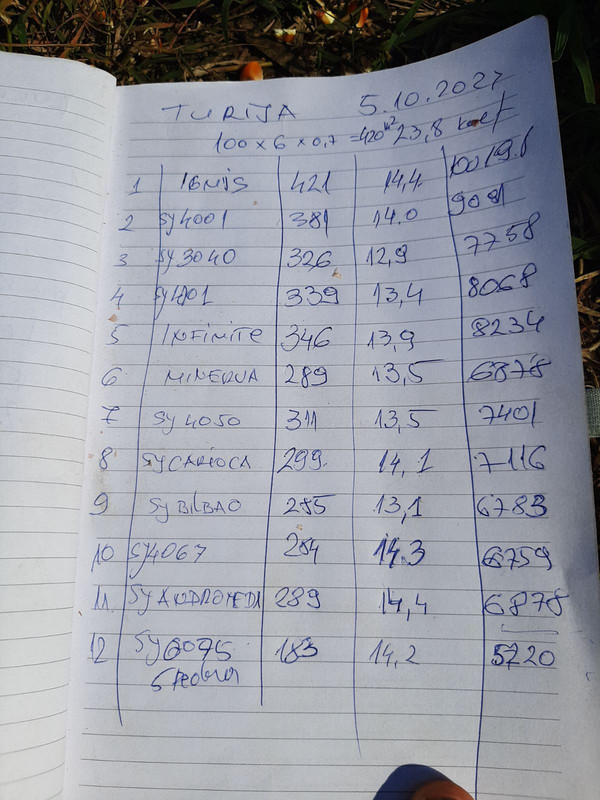 TURIJA 5.10.2027
100 x 6 x 0,7 = 420 m² 23,8 koef
1 IGNIS 421 14,4 10019.8
2 Sy 4001 381 14.0
3 Sy 3040 326 12,9 7758
4 Sy 339 13,4 8068
5 INFINITE 346 13,9 8234
6 MINERVA 289 13,5 6878
7 Sy 4050 311 13,5 7401
8 Sy CARIOCA 299 14,1 7116
9 Sy BILBAO 285 13,1 6783
10 Sy4067 284 14.3 6759
11 Sy ANDROMEDA 289 14,4 6878
12 Sy6075 183 14,2 5720
5 redova